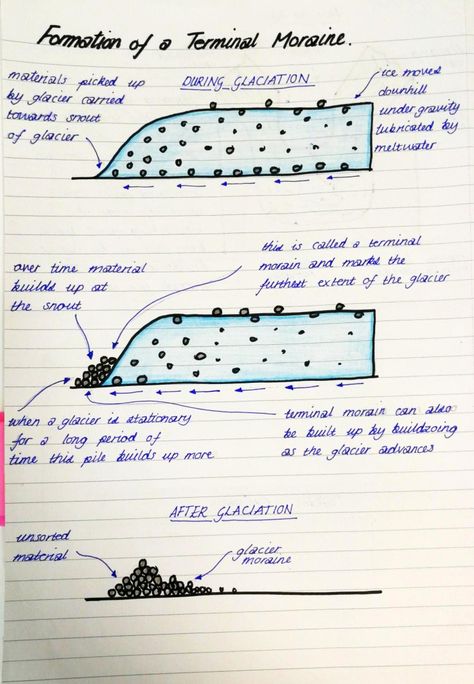 Formation of a Terminal Moraine.
DURING GLACIATION
materials picked up
by glacier carried
towards snout
of glacier
ice moves
downhill
under gravity
lubricated by
meltwater
over time material
builds up at
the snout
this is called a terminal
morain and marks the
furthest extent of the glacier
when a glacier is stationary
for a long period of
time this pile builds up more
terminal morain can also
be built up by buildzoing
as the glacier advances
AFTER GLACIATION
unsorted
material
glacier
moraine